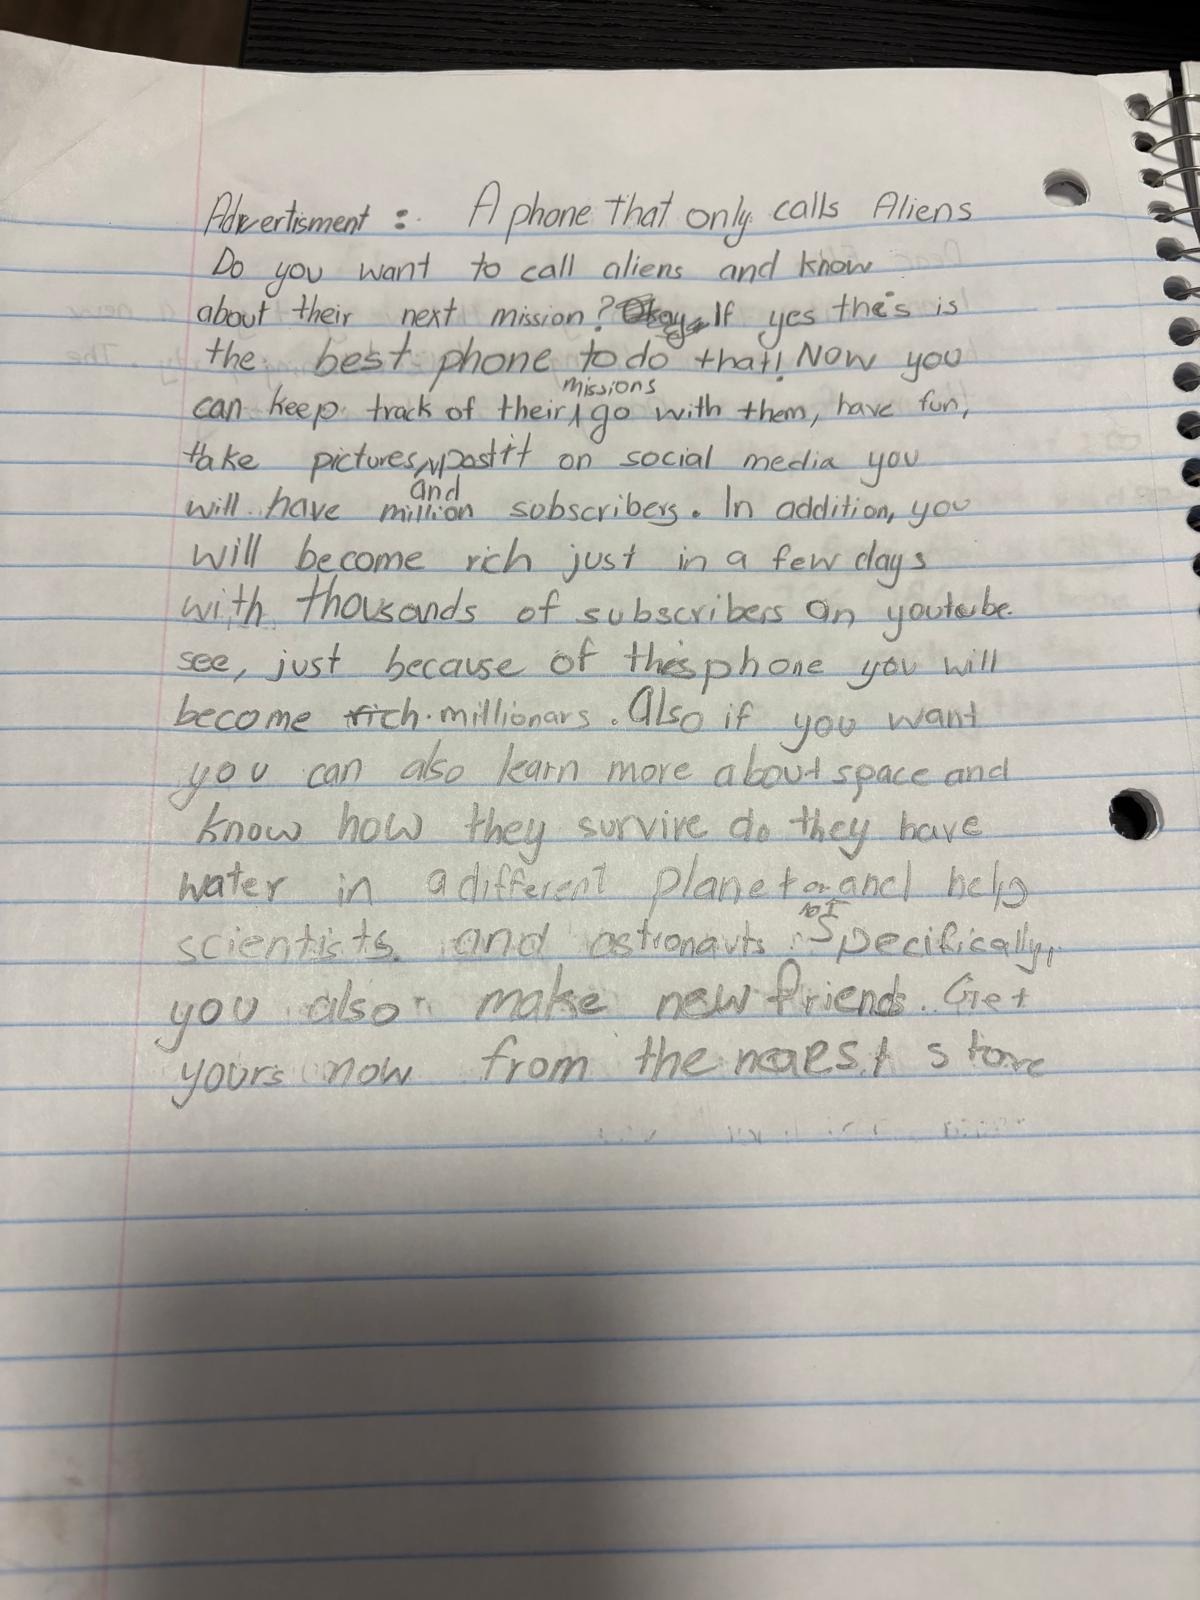 Advertisment : A phone that only calls Aliens
Do you want to call aliens and know
about their next mission? If yes this is
the best phone to do that! Now you
missions
can keep track of their go with them, have fun,
take pictures, post it on social media you
and
will have million subscribers. In addition, you
will become rich just in a few days
with thousands of subscribers on youtube
see, just because of this phone you will
become rich. millionars. Also if you want
you can also learn more about space and
know how they survive do they have
water in a different planet or and help
not
scientists and astronauts. Specifically,
you also make new friends. Get
yours now from the nearest store